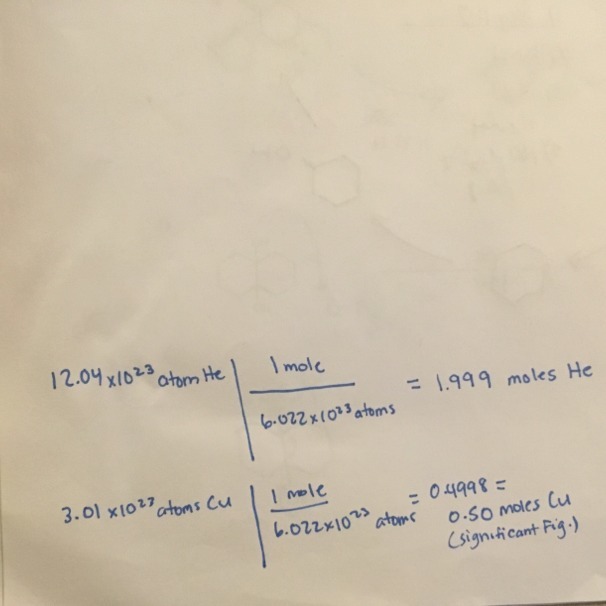 12.04 x 10²³ atom He | 1 mole / 6.022 x 10²³ atoms = 1.999 moles He
3.01 x 10²³ atoms Cu | 1 mole / 6.022 x 10²³ atoms = 0.4998 =
0.50 moles Cu
(significant Fig.)